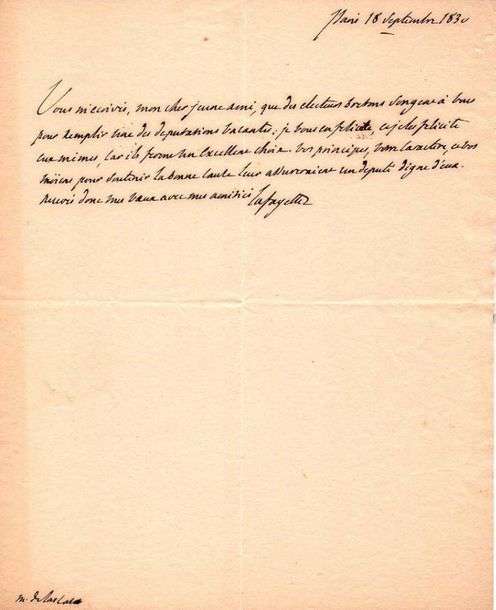 Paris 18 Septembre 1830
Vous m'ecrivés, mon cher jeune ami, que des electeurs bretons songent à vous
pour remplir une des deputations vacantes; je vous en felicite, et je les felicite
eux mêmes, car ils feront un excellent choix. vos principes, votre caractere, et vos
moïens pour soutenir la bonne cause leur assureroient un deputé digne d'eux.
recevés donc mes vœux avec mes amitiés Lafayette
m. de Las Cases